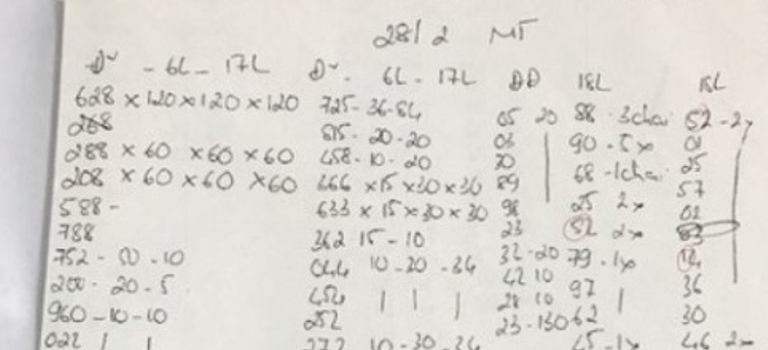 28/2 MT
D - 6L - 17L
628 x 120 x 120 x 120
268
288 x 60 x 60 x 60
208 x 60 x 60 x 60
588 -
788
752 - 10 - 10
200 - 20 - 5
960 - 10 - 10
022 | |
D 6L - 17L
725 - 36 - 84
815 - 20 - 20
458 - 10 - 20
466 x 15 x 30 x 30
633 x 15 x 30 x 30
362 15 - 10
044 10 - 20 - 34
454 | | |
252
272 10 - 30 - 34
DD
05 20
03
20
89
98
23
32 - 20
42 10
28 10
23 - 130
18L
88 - 3
90 - 5x
68 - 1
25 2x
52 2x
79 - 1x
97 |
62
45 - 1x
18L
52 - 2
01
25
57
02
83
12
36
30
46 2x